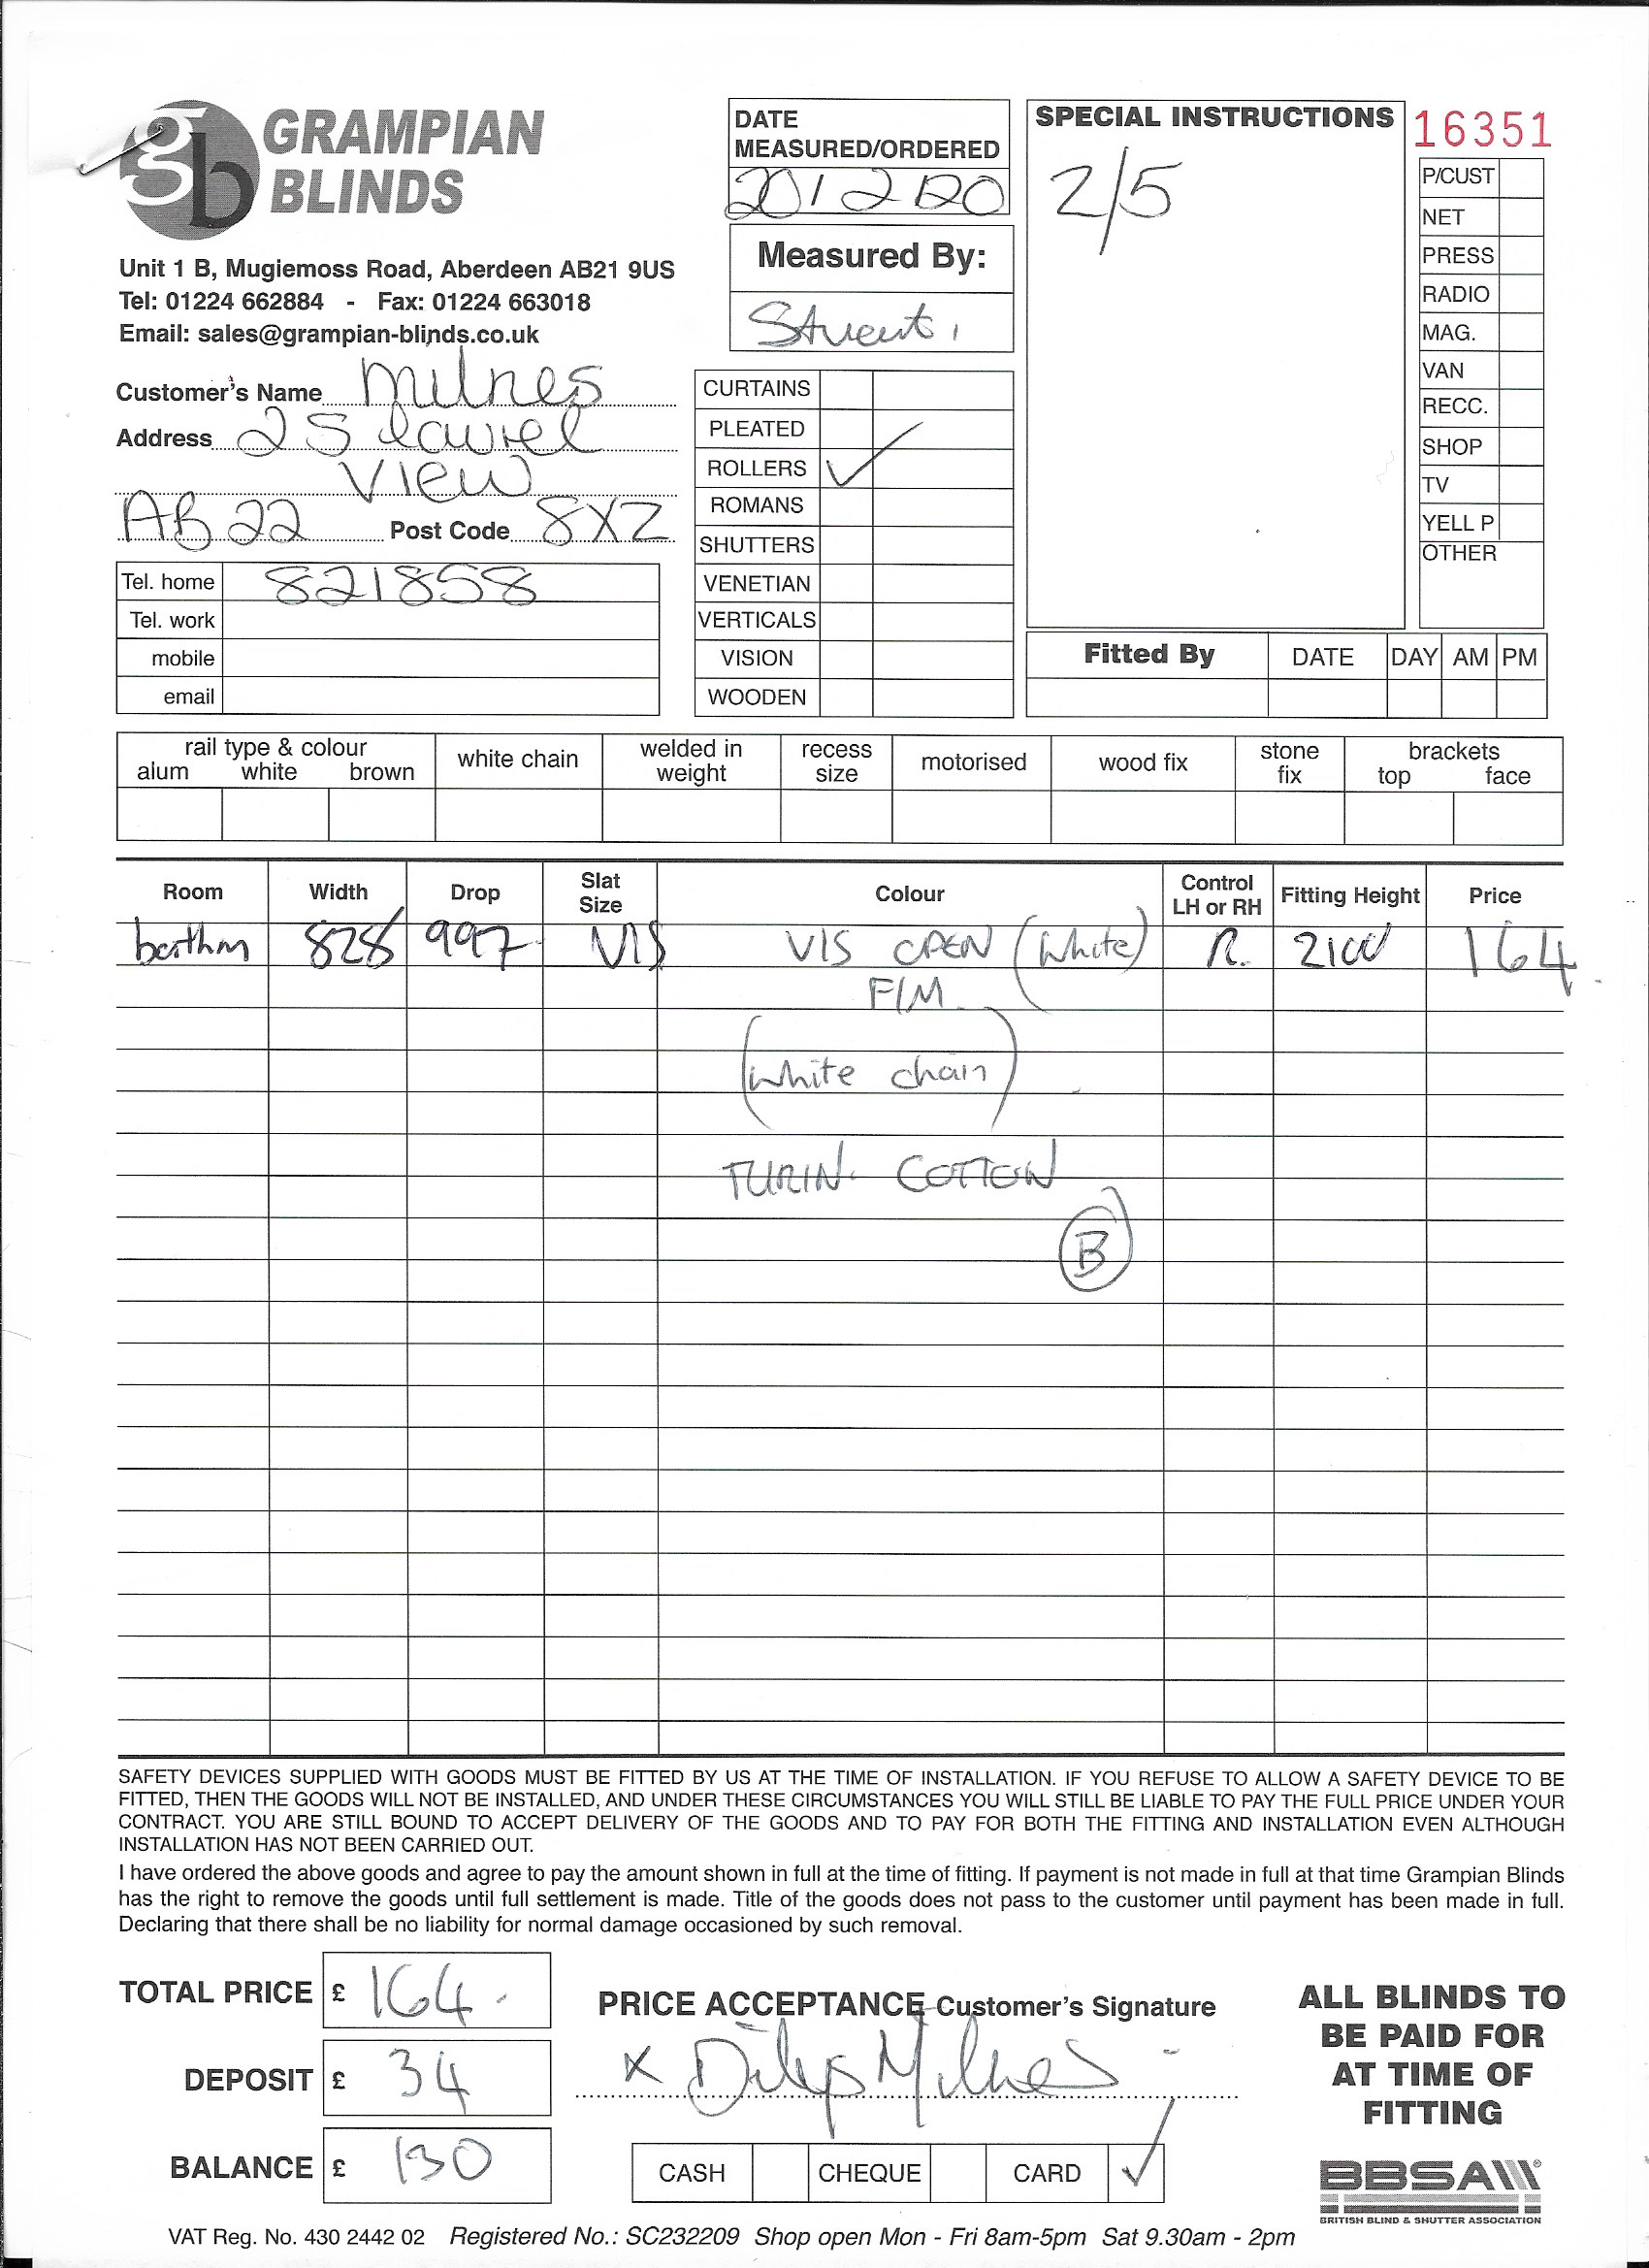 gb GRAMPIAN BLINDS
Unit 1 B, Mugiemoss Road, Aberdeen AB21 9US
Tel: 01224 662884 - Fax: 01224 663018
Email: sales@grampian-blinds.co.uk
DATE MEASURED/ORDERED
Measured By:
Stuart
SPECIAL INSTRUCTIONS
2/5
16351
P/CUST
NET
PRESS
RADIO
MAG.
VAN
RECC.
SHOP
TV
YELL P
OTHER
Customer's Name Milnes
Address 25 Laurel
View
AB22 Post Code 8XZ
Tel. home 821858
Tel. work
mobile
email
CURTAINS
PLEATED
ROLLERS ✓
ROMANS
SHUTTERS
VENETIAN
VERTICALS
VISION
WOODEN
Fitted By DATE DAY AM PM
rail type & colour white chain welded in weight recess size motorised wood fix stone fix brackets
alum white brown top face
Room Width Drop Slat Size Colour Control LH or RH Fitting Height Price
bathrm 828 997 VIS VIS OPEN (White) R. 2100 164
F/M
(White chain)
TURIN COTTON
B
SAFETY DEVICES SUPPLIED WITH GOODS MUST BE FITTED BY US AT THE TIME OF INSTALLATION. IF YOU REFUSE TO ALLOW A SAFETY DEVICE TO BE
FITTED, THEN THE GOODS WILL NOT BE INSTALLED, AND UNDER THESE CIRCUMSTANCES YOU WILL STILL BE LIABLE TO PAY THE FULL PRICE UNDER YOUR
CONTRACT. YOU ARE STILL BOUND TO ACCEPT DELIVERY OF THE GOODS AND TO PAY FOR BOTH THE FITTING AND INSTALLATION EVEN ALTHOUGH
INSTALLATION HAS NOT BEEN CARRIED OUT.
I have ordered the above goods and agree to pay the amount shown in full at the time of fitting. If payment is not made in full at that time Grampian Blinds
has the right to remove the goods until full settlement is made. Title of the goods does not pass to the customer until payment has been made in full.
Declaring that there shall be no liability for normal damage occasioned by such removal.
TOTAL PRICE £ 164
DEPOSIT £ 34
BALANCE £ 130
PRICE ACCEPTANCE Customer's Signature
x Milnes
CASH CHEQUE CARD ✓
ALL BLINDS TO
BE PAID FOR
AT TIME OF
FITTING
BBSA
BRITISH BLIND & SHUTTER ASSOCIATION
VAT Reg. No. 430 2442 02 Registered No.: SC232209 Shop open Mon - Fri 8am-5pm Sat 9.30am - 2pm